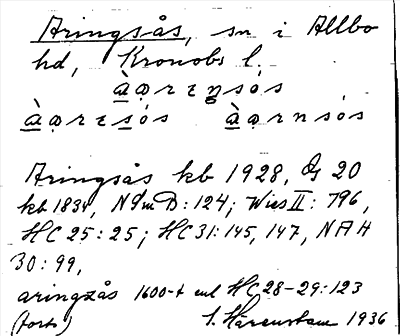 Aringsås, sn i Allbo
hd, Kronobs l.
àạreṇsós
àạresós àạrnsós
Aringsås kb 1928, GS 20
kb 1834, NSmB: 124; Wies II: 796,
HC 25: 25; HC 31: 145, 147, NAH
30: 99,
aringzås 1600-t enl HC 28-29: 123
(forts) 1936